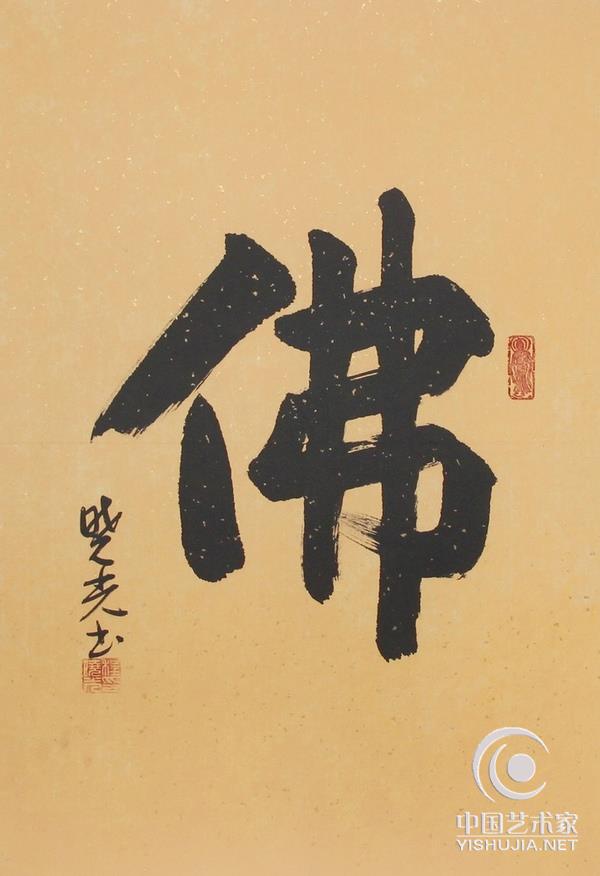 佛
晓光书
中国艺术家
YISHUJIA.NET